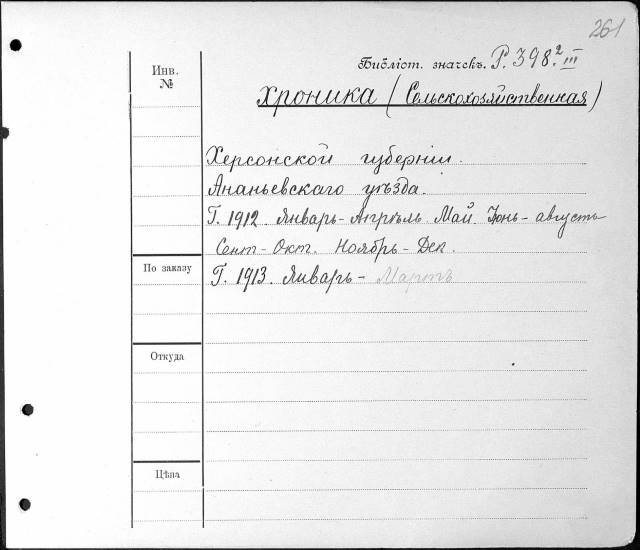 261
Библіот. значекъ. Р. 398.² III
Инв.
№
Хроника (Сельскохозяйственная)
Херсонской губерніи.
Ананьевскаго уѣзда.
Г. 1912. Январь - Апрѣль. Май. Іюнь - августъ
Сент - Окт. Ноябрь - Дек.
По заказу
Г. 1913. Январь - Мартъ
Откуда
Цѣна